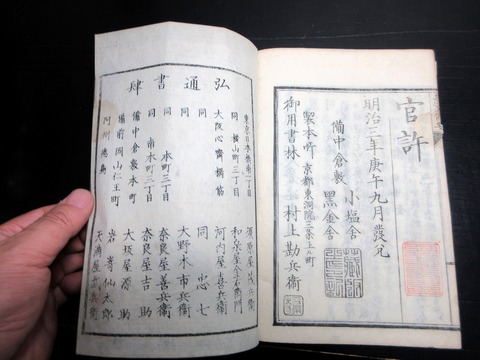 官許
明治三年庚午九月發兌
備中倉敷
小塩舎
黒金舎
製本所 京都東洞院三条上ル町
御用書林 村上勘兵衛
弘通書肆
東京日本橋通一丁目 須原屋茂兵衛
同 横山町三丁目 和泉屋金右衛門
大阪心齋橋筋 河内屋喜兵衛
同 忠七
同 大野木市兵衛
同 本町三丁目 奈良屋善兵衛
同 南本町三丁目 奈良屋吉助
備中倉敷本町 大坂屋源助
備前岡山仁王町 岩嵜仙太郎
阿州徳島 天満屋武兵衛